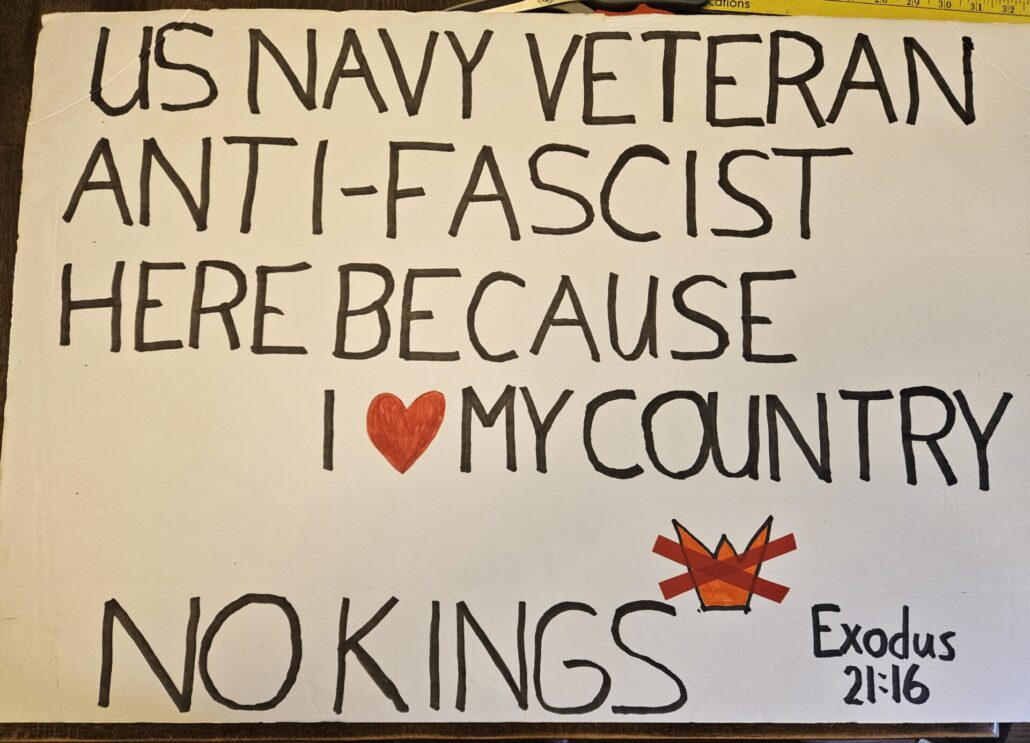 cations
29 30 31 32
US NAVY VETERAN
ANTI-FASCIST
HERE BECAUSE
I ❤ MY COUNTRY
NO KINGS
Exodus
21:16